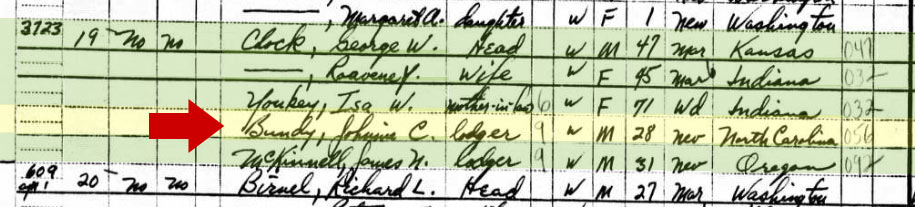 ——, Margaret A. daughter W F 1 nev Washington
3723 19 no no Clock, George W. Head W M 47 Mar Kansas 047
——, Roavene Y. Wife W F 45 Mar Indiana 032
Youkey, Isa W. mother-in-law 6 W F 71 Wd Indiana 032
Bundy, Johnnie C. lodger 9 W M 28 nev North Carolina 056
McKinnell, James N. lodger 9 W M 31 nev Oregon 092
609 20 no no Birnel, Richard L. Head W M 27 Mar Washington